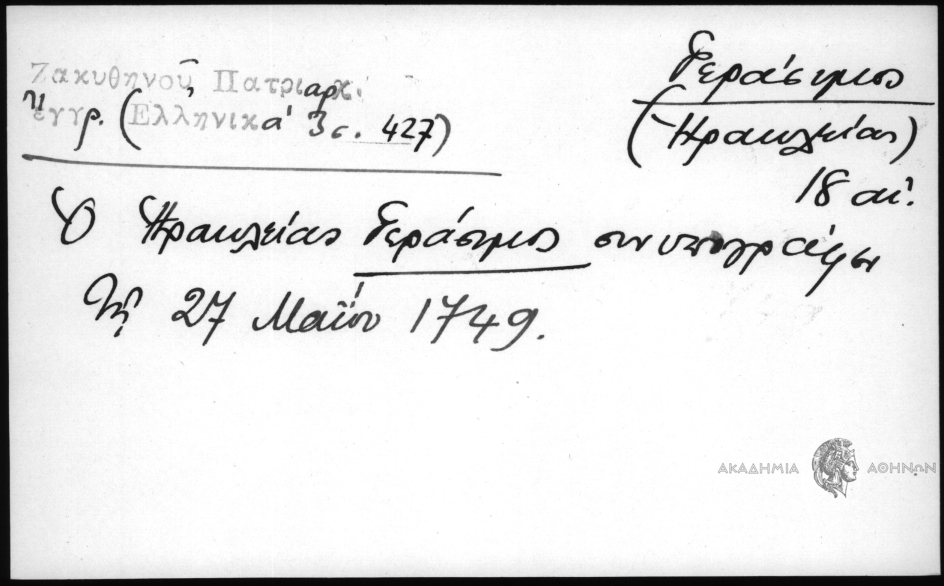 Ζακυθηνοῦ, Πατριαρχ.
ἔγγρ. (Ἑλληνικά 3 σ. 427)
Γεράσιμος
(Ἡρακλείας)
18 αἰ.
Ὁ Ἡρακλείας Γεράσιμος συνυπογράφει
τῇ 27 Μαΐου 1749.
ΑΚΑΔΗΜΙΑ ΑΘΗΝΩΝ